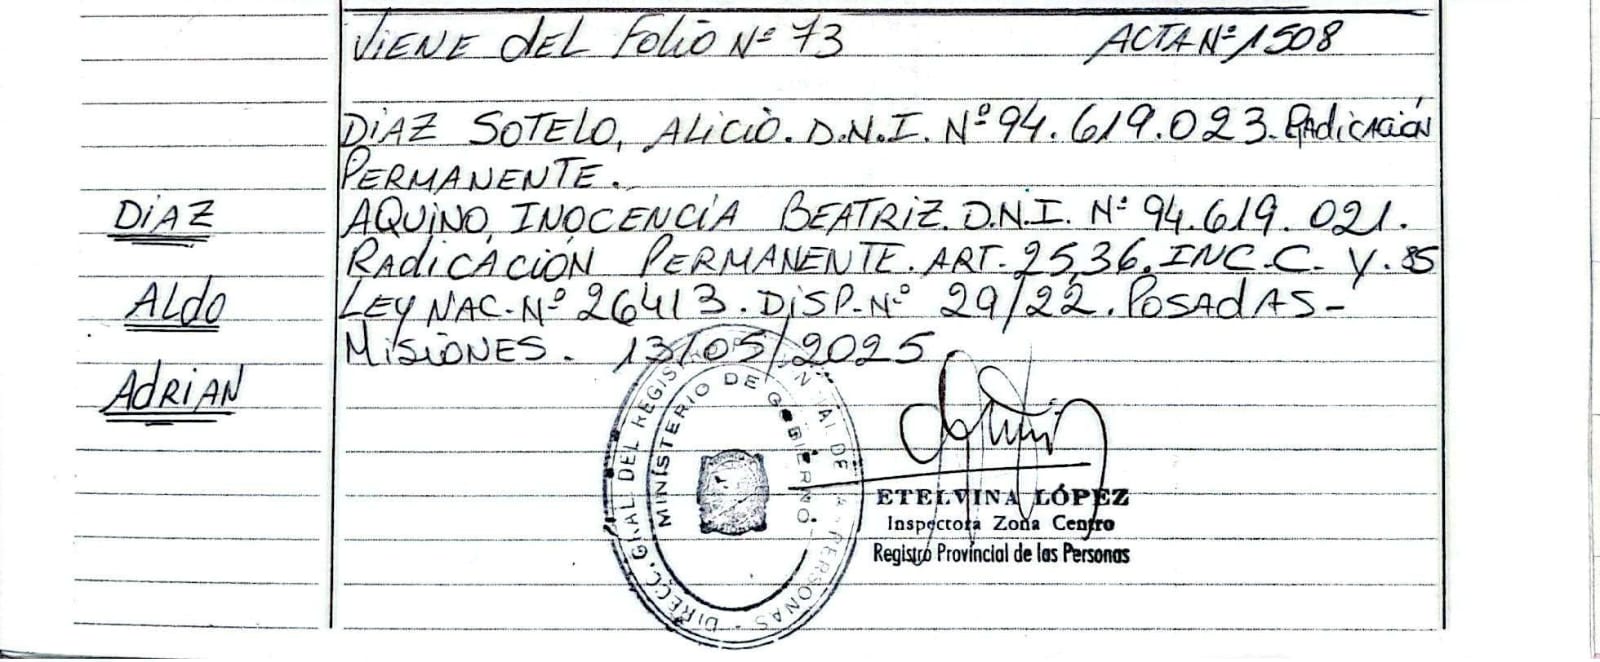 ViENE dEL FoLio Nº 73
ACTA Nº 1508
DiAZ SOTELO, ALiCiO. D.N.I. Nº 94.619.023. RAdiCACiÓN
PERMANENTE.
DiAZ
AQUiNO, INOCENCiA BEATRiZ. D.N.I. Nº 94.619.021.
RAdiCACiÓN PERMANENTE. ART. 25,36. INC.C. Y. 85
ALdo
LEY NAC. Nº 26413. DiSP. Nº 29/22. POSAdAS-
MiSiONES. 13/05/2025
AdRiAN
DIRECC. GRAL DEL REGISTRO PROVINCIAL DE LAS PERSONAS
MINISTERIO DE GOBIERNO
ETELVINA LÓPEZ
Inspectora Zona Centro
Registro Provincial de las Personas